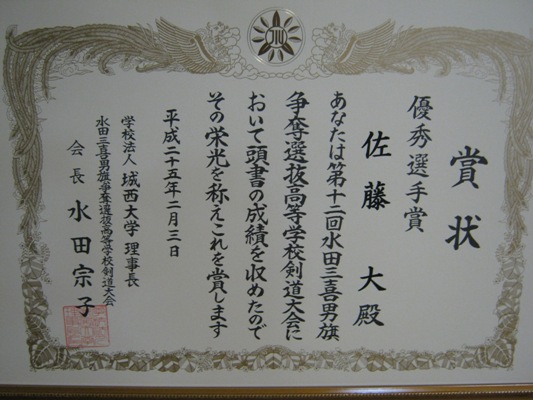 賞状
優秀選手賞
佐藤 大殿
あなたは第十二回水田三喜男旗
争奪選抜高等学校剣道大会に
おいて頭書の成績を収めたので
その栄光を称えこれを賞します
平成二十五年二月三日
学校法人 城西大学 理事長
水田三喜男旗争奪選抜高等学校剣道大会
会長 水田宗子